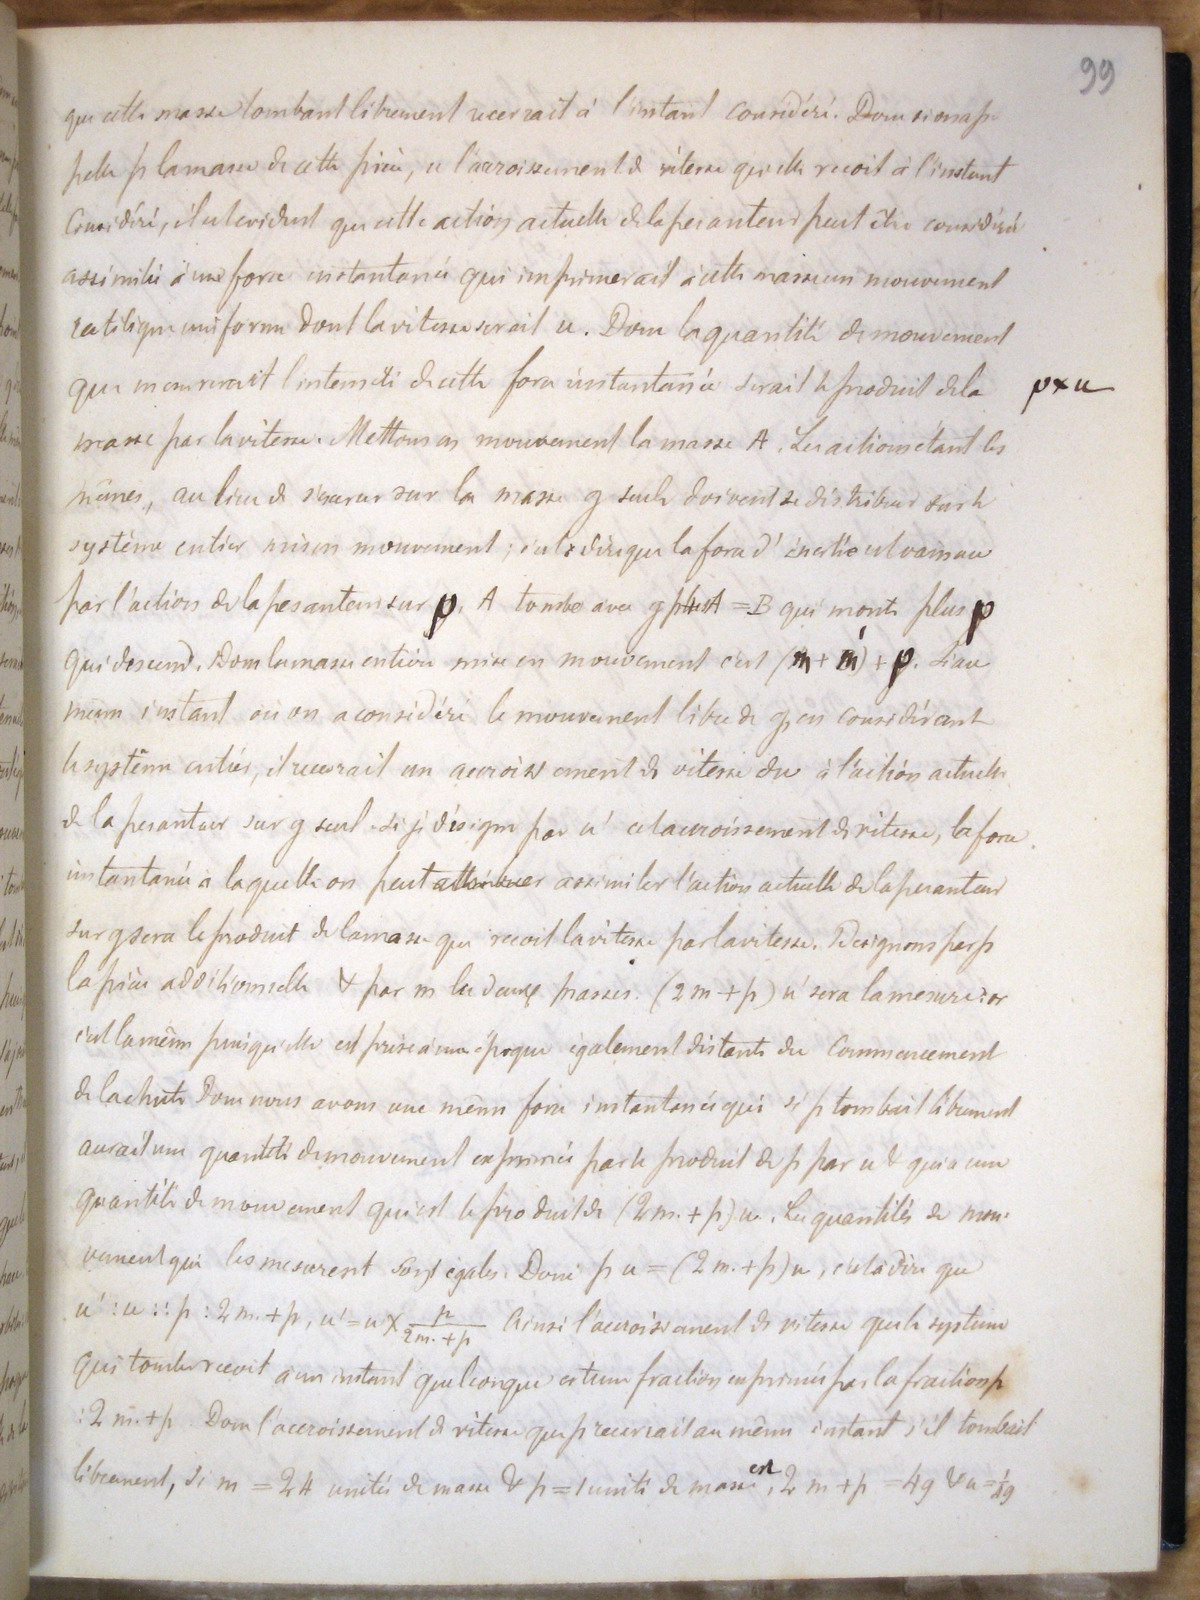 99
que cette masse tombant librement recevrait à l'instant considéré. Donc si on ap
pelle p la masse de cette pièce, u l'accroissement de vitesse qu'elle reçoit à l'instant
Considéré, il est evident que cette action actuelle de la pesanteur peut être considérée
assimilée à une force instantanée qui imprimerait à cette masse un mouvement
rectiligne uniforme dont la vitesse serait u. Donc la quantité de mouvement
qui mesurerait l'intensité de cette force instantanée serait le produit de la
p × u
masse par la vitesse. Mettons en mouvement la masse A. Les actions étant les
mêmes, au lieu de s'exercer sur la masse g seule doivent se distribuer sur le
système entier mis en mouvement ; c'est à dire que la force d'inertie est vaincue
par l'action de la pesanteur sur p. A tombe avec g plus A = B qui monte plus p
qui descend. Donc la masse entière mise en mouvement c'est (m + m') + p. Si au
même instant où on a considéré le mouvement libre de g, en considérant
le système entier, il recevrait un accroissement de vitesse due à l'action actuelle
de la pesanteur sur g seul. Si je désigne par u' cet accroissement de vitesse, la force
instantanée à laquelle on peut attribuer assimiler l'action actuelle de la pesanteur
sur g sera le produit de la masse qui reçoit la vitesse par la vitesse. Designons par p
la pièce additionnelle & par m les deux masses. (2 m + p) u' sera la mesure : or
c'est la même puisqu'elle est prise à une époque également distante du Commencement
de la chute Donc nous avons une même force instantanée qui si p tombait librement
aurait une quantité de mouvement exprimée par le produit de p par u & qui a une
quantité de mouvement qui est le produit de (2 m. + p) u. Les quantités de mou-
vement qui les mesurent sont égales. Donc p u = (2 m. + p) u, c'est à dire que
u' : u :: p : 2 m. + p, u' = u × p / 2m. + p Ainsi l'accroissement de vitesse que le système
qui tombe reçoit à un instant quelconque est une fraction exprimée par la fraction p
: 2 m. + p. Donc l'accroissement de vitesse que p recevrait au même instant s'il tombait
librement, Si m = 24 unités de masse & p = 1 unité de masse est, 2 m + p = 49 & u = 1/49